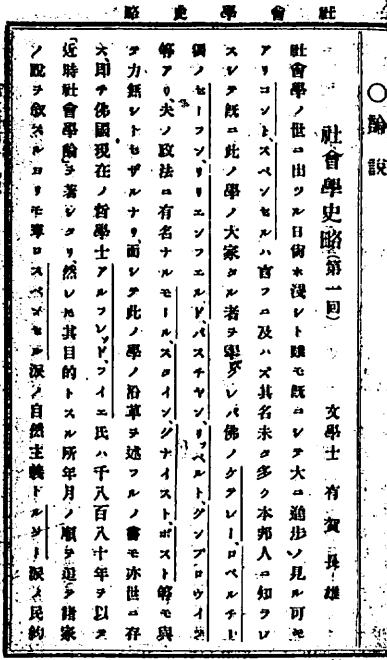 社會學史略
○論説
社會學史略(第一回)
文學士 有賀長雄
社會學ノ世ニ出ツル日尚ホ淺シト雖モ既ニシテ大ニ進歩ノ見ル可キ
アリコント、スペンセルハ言フニ及ハズ其名未タ多ク本邦人ニ知ラレ
スシテ既ニ此ノ學ノ大家タル者ヲ擧グレバ佛ノケテレー、ロベルチー
獨ノセーフレン、リリエンフェルド、バスチヤン、リッペルト、グンプロウイチ
等アリ、夫ノ政法ニ有名ナルモール、スタイン、グナイスト、ポスト等モ與
テ力無シトセザルナリ、而シテ此ノ學ノ沿革ヲ述フルノ書モ亦世ニ存
ス、即チ佛國現在ノ哲學士アルフレッド、フイエ氏ハ千八百八十年ヲ以テ
「近時社會學論」ヲ著シタリ、然レ𪜈其目的トスル所年月ノ順ヲ追テ諸家
ノ説ヲ敍スルヨリモ寧ロスペンセル派ノ自然主義トルソー派ノ民約